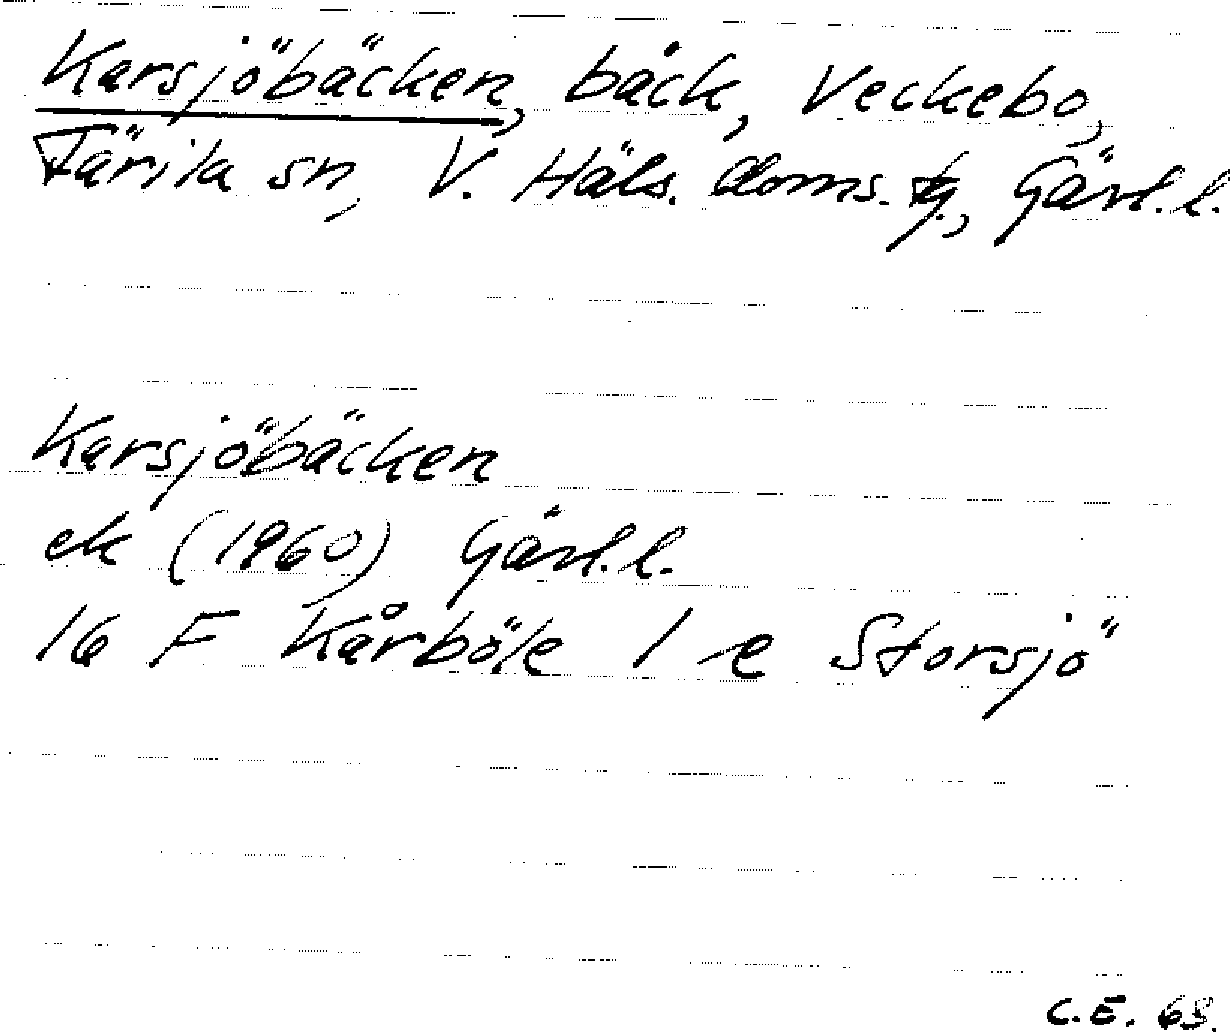 Karsjöbäcken, bäck, Veckebo,
Färila sn, V. Häls. doms. tg., Gävl. l.
Karsjöbäcken
ek (1960) Gävl. l.
16 F Kårböle 1 e Storsjö
C.E. 63